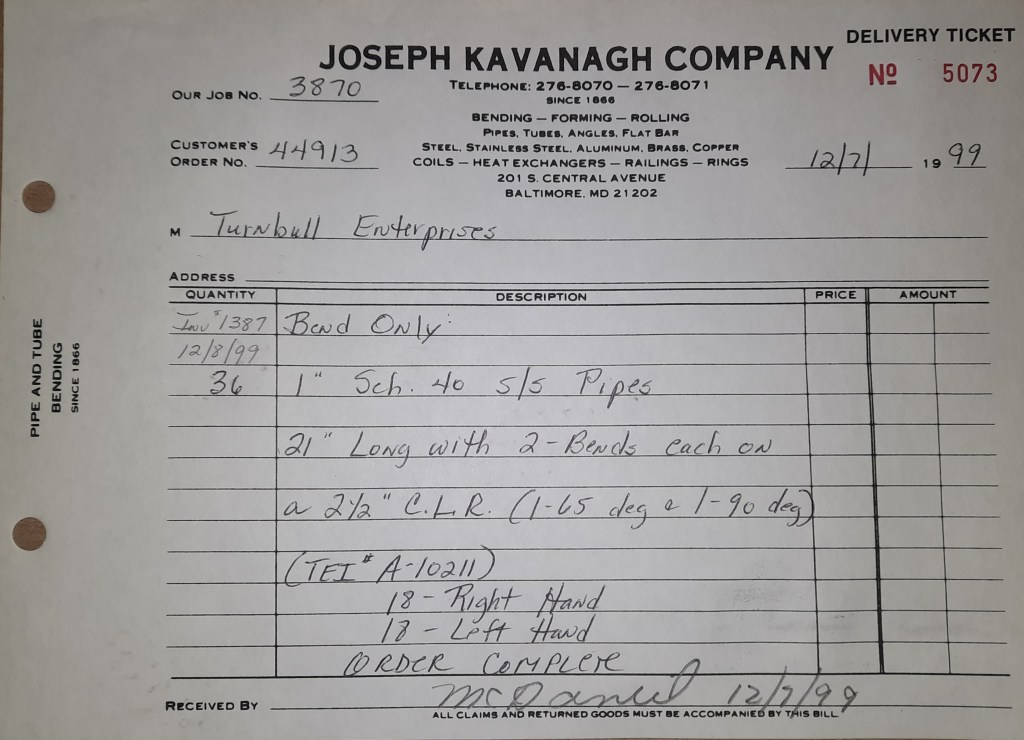 DELIVERY TICKET
JOSEPH KAVANAGH COMPANY
Nº 5073
OUR JOB NO. 3870
TELEPHONE: 276-8070 — 276-8071
SINCE 1866
BENDING — FORMING — ROLLING
PIPES, TUBES, ANGLES, FLAT BAR
CUSTOMER'S ORDER NO. 44913
STEEL, STAINLESS STEEL, ALUMINUM, BRASS, COPPER
COILS — HEAT EXCHANGERS — RAILINGS — RINGS
12/7/ 19 99
201 S. CENTRAL AVENUE
BALTIMORE, MD 21202
M Turnbull Enterprises
ADDRESS
QUANTITY DESCRIPTION PRICE AMOUNT
Inv # 1387 Bend Only:
12/8/99
36 1" Sch. 40 S/S Pipes
21" Long with 2-Bends each on
a 2 1/2" C.L.R. (1-65 deg & 1-90 deg)
(TEI # A-10211)
18 - Right Hand
18 - Left Hand
ORDER COMPLETE
RECEIVED BY McDaniel 12/7/99
ALL CLAIMS AND RETURNED GOODS MUST BE ACCOMPANIED BY THIS BILL
PIPE AND TUBE
BENDING
SINCE 1866